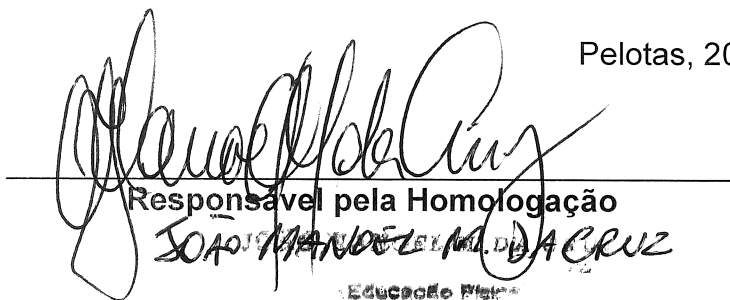 Pelotas, 20
JManoel M da Cruz
Responsável pela Homologação
JOÃO MANOEL M. DA CRUZ
Educação